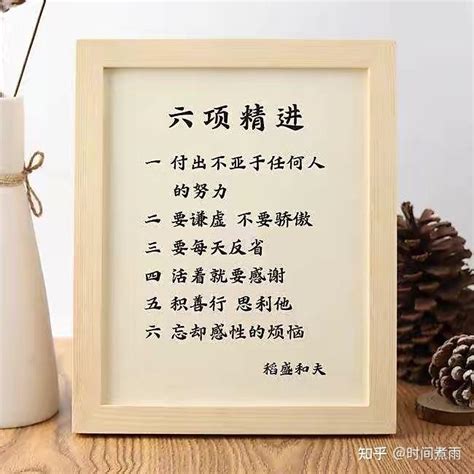 六项精进
一 付出不亚于任何人
的努力
二 要谦虚 不要骄傲
三 要每天反省
四 活着就要感谢
五 积善行 思利他
六 忘却感性的烦恼
稻盛和夫
知乎 @时间煮雨